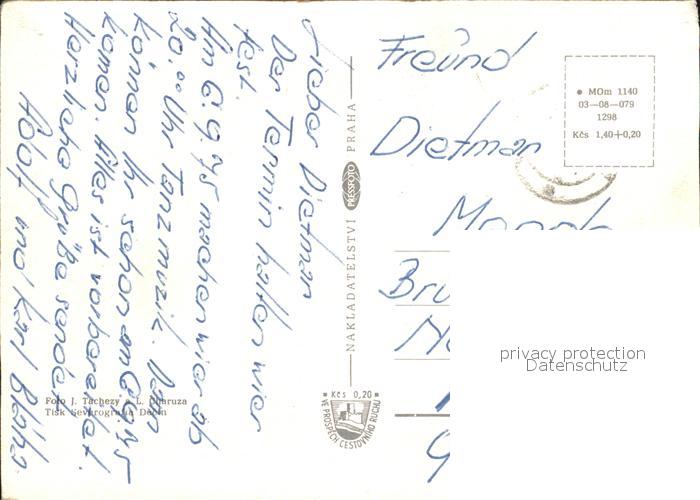 Lieber Dietman
Der Termin halten wier
fest.
Am 6.9.75 machen wier ab
20.00 Uhr Tanzmuzik. Dan
können Ihr schon am 6.9.75
komen. Alles ist vorbereitet.
Herzliche Grüße senden
Adolf und Karl Bláha
Foto J. Tachezy a L.
Tisk Severografia Děčín
NAKLADATELSTVÍ PRESSFOTO PRAHA
Kčs 0,20
VE PROSPĚCH CESTOVNÍHO RUCHU
MOm 1140
03—08—079
1298
Kčs 1,40+0,20
Freund
Dietman
privacy protection
Datenschutz